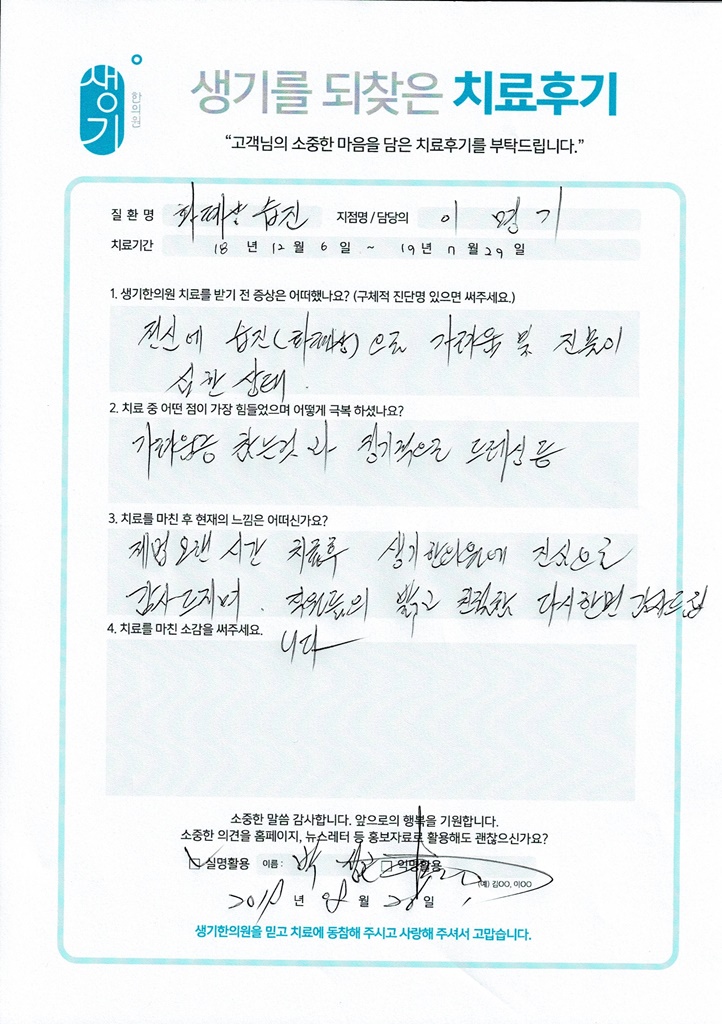 생기
한의원
생기를 되찾은 치료후기
“고객님의 소중한 마음을 담은 치료후기를 부탁드립니다.”
질 환 명 화폐상 습진 지점명 / 담당의 이 명 기
치료기간 18 년 12 월 6 일 ~ 19 년 7 월 29 일
1. 생기한의원 치료를 받기 전 증상은 어떠했나요? (구체적 진단명 있으면 써주세요.)
전신에 습진(화폐상)으로 가려움 및 진물이
심한 상태.
2. 치료 중 어떤 점이 가장 힘들었으며 어떻게 극복 하셨나요?
가려움등 참는것과 정기적으로 드레싱 등
3. 치료를 마친 후 현재의 느낌은 어떠신가요?
제법 오랜 시간 치료후 생기한의원에 진심으로
감사드리며. 직원들의 밝고 친절함 다시한번 감사드립
니다
4. 치료를 마친 소감을 써주세요.
소중한 말씀 감사합니다. 앞으로의 행복을 기원합니다.
소중한 의견을 홈페이지, 뉴스레터 등 홍보자료로 활용해도 괜찮으신가요?
실명활용 이름 : 박 익명활용
(예) 김OO, 이OO
년 8 월 일
생기한의원을 믿고 치료에 동참해 주시고 사랑해 주셔서 고맙습니다.